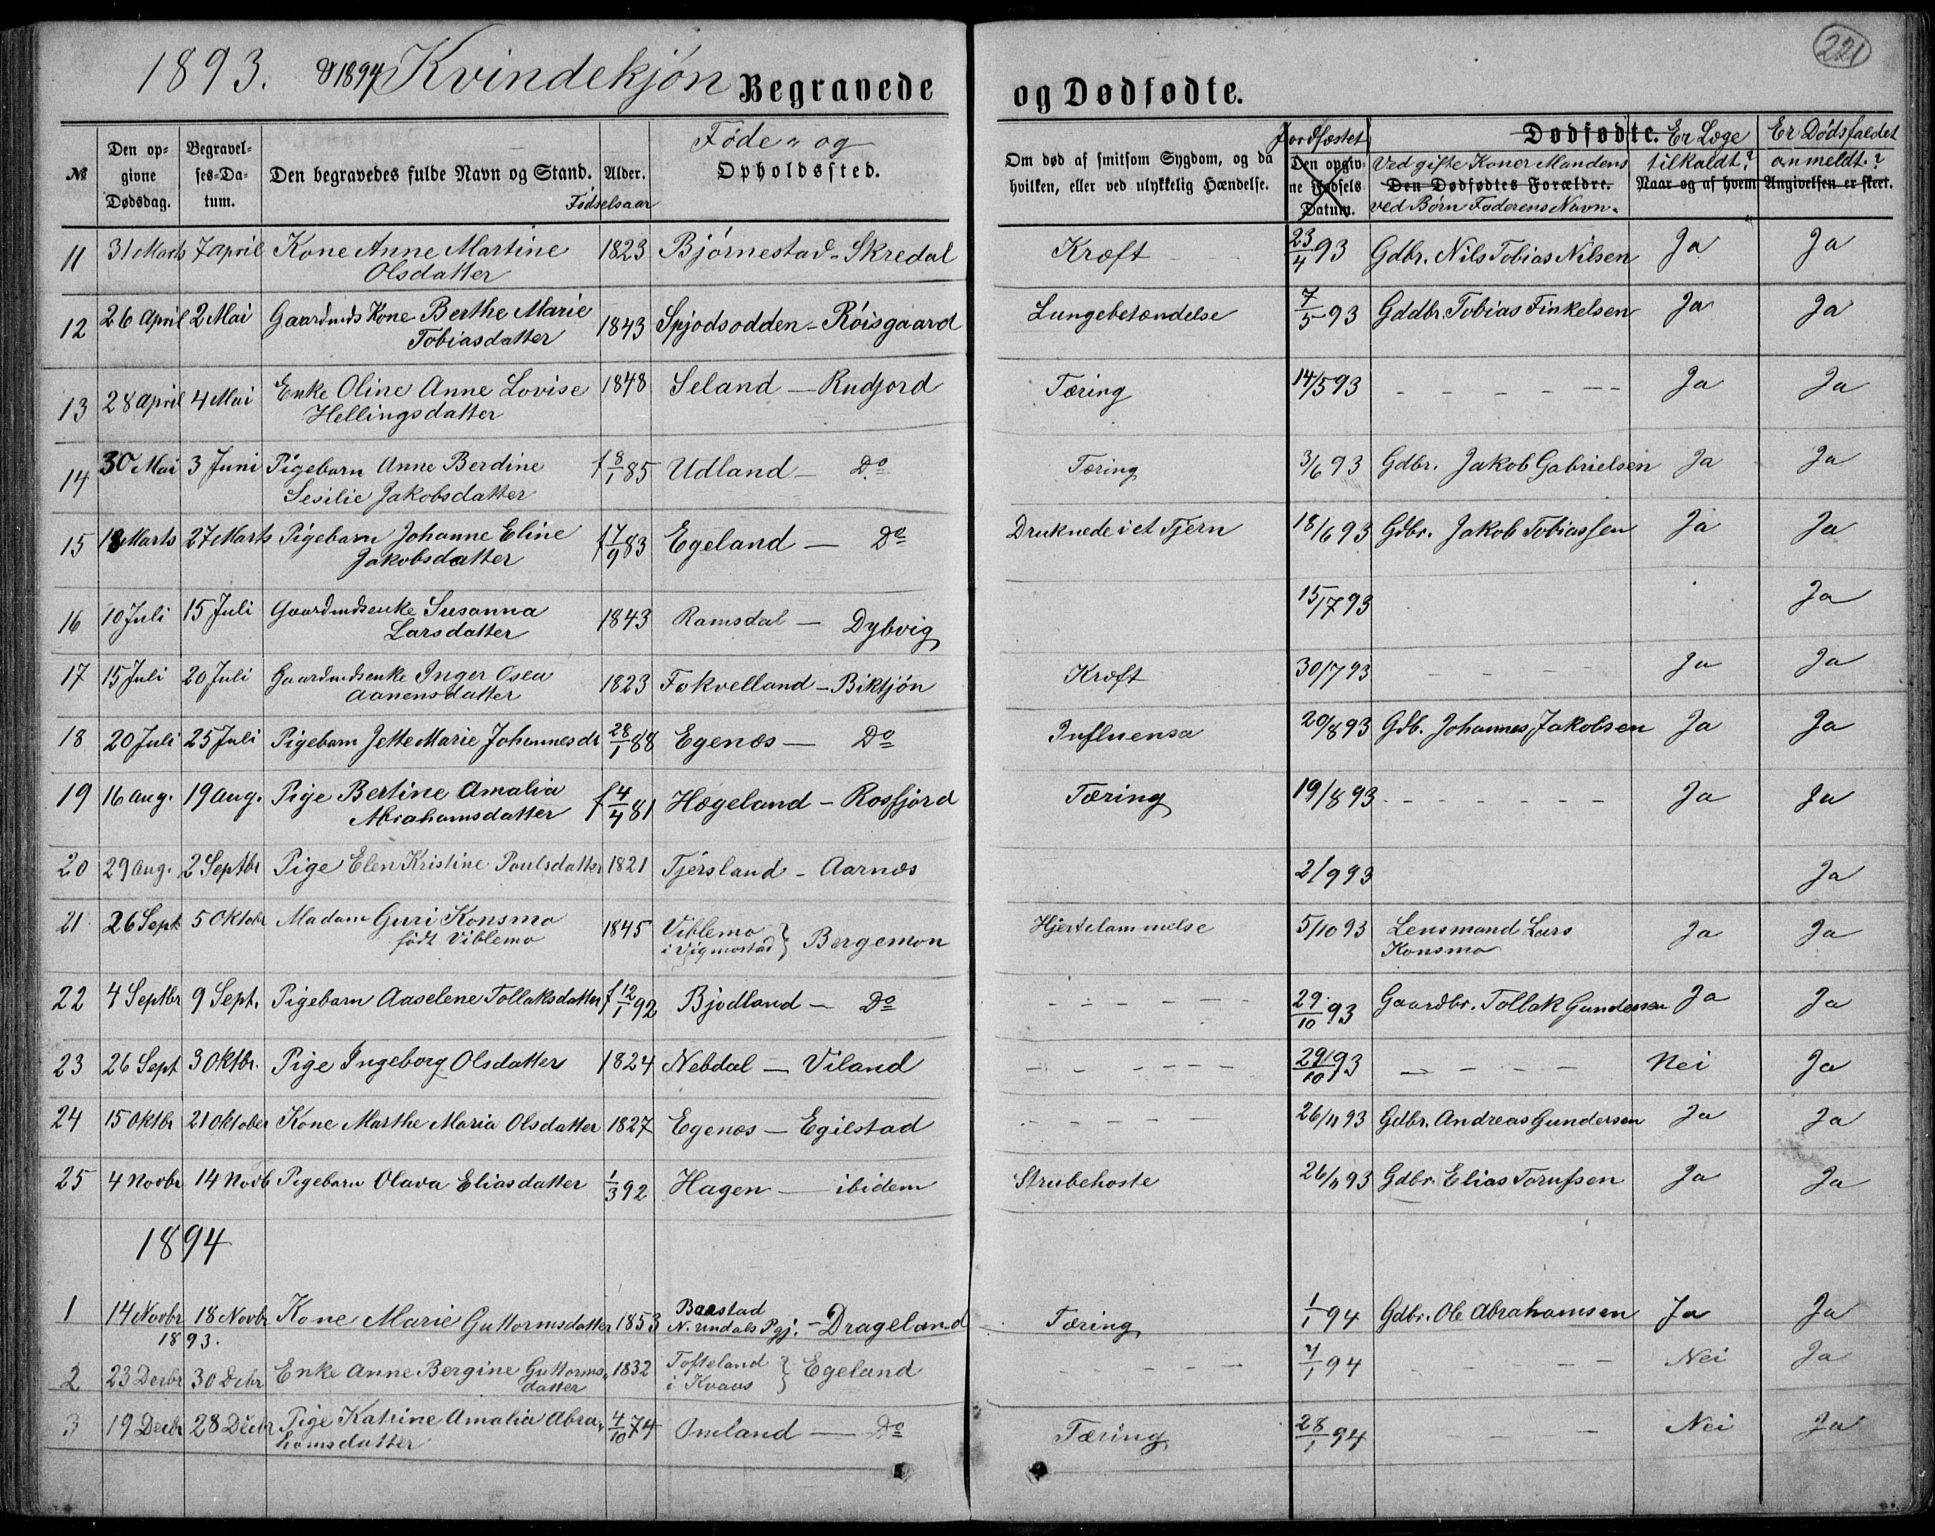 221
1893. & 1894 Kvindekjøn Begravede og Dødfødte.
№ Den opgivne Dødsdag. Begravelses-Datum. Den begravedes fulde Navn og Stand. Alder. Fødselsaar Føde- og Opholdssted. Om død af smitsom Sygdom, og da hvilken, eller ved ulykkelig Hændelse. Jordfæstet Den opgivne Fødsels Datum. Dødfødte. Ved gifte Koner Mandens Den Dødfødtes Forældre. ved Børn Faderens Navn. Er Læge tilkaldt? Naar og af hvem Er Dødsfaldet anmeldt? Angivelsen er skeet.
11 31 Marts 7 april Kone Anne Martine 1823 Bjørnestad - Skredal Kræft 23/4 93 Gdbr. Nils Tobias Nilsen Ja Ja
Olsdatter
12 26 April 2 Mai Gaardmds Kone Berthe Marie 1843 Spjodsodden - Röisgaard Lungebetændelse 7/5 93 Gddbr. Tobias Finkelsen Ja Ja
Tobiasdatter
13 28 April 4 Mai Enke Oline Anne Lovise 1848 Seland - Rudjord Tæring 14/5 93 - - - - - Ja Ja
Hellingsdatter
14 30 Mai 3 Juni Pigebarn Anne Berdine f 8/1 85 Udland - Do Tæring 3/6 93 Gdbr. Jakob Gabrielsen Ja Ja
Sesilie Jakobsdatter
15 18 Marts 27 Marts Pigebarn Johanne Eline f 17/9 83 Egeland - Do Druknede i et Tjern 18/6 93 Gdbr. Jakob Tobiassen Ja Ja
Jakobsdatter
16 10 Juli 15 Juli Gaardmdsenke Susanna 1843 Ramsdal - Dybvig 15/7 93 Ja
Larsdatter
17 15 Juli 20 Juli Gaardmdsenke Inger Osea 1823 Fokvelland - Biktjön Kræft 30/7 93 - - - Ja Ja
Aanensdatter
18 20 Juli 25 Juli Pigebarn Jette Marie Johannesdr 28/1 88 Egenæs - Do Influensa 20/8 93 Gdb. Johannes Jakobsen Ja Ja
19 16 aug. 19 aug. Pige Bertine Amalia f 4/4 81 Hægeland - Rosfjord Tæring 19/8 93 - - - - - - Ja Ja
Abrahamsdatter
20 29 aug. 2 Septbr Pige Elen Kristine Poulsdatter 1821 Tjersland - Aarnæs 2/9 93 Ja
21 26 Sept 5 Oktobr Madam Guri Konsmo 1845 Viblemo i Vigmostad } Bergemon Hjertelammelse 5/10 93 Lensmand Lars Ja Ja
født Viblemo Konsmo
22 4 Septbr 9 Sept. Pigebarn Aaselene Tollaksdatter f 12/1 92 Bjodland - Do - - - - - - 29/10 93 Gaardbr. Tollak Gundersen Ja Ja
23 26 Sept 3 Oktbr. Pige Ingeborg Olsdatter 1824 Nebdal - Viland - - - - - - 29/10 93 - - - - - Nei Ja
24 15 Oktbr 21 Oktober Kone Marthe Maria Olsdatter 1827 Egenæs - Egilstad - - - - - 26/11 93 Gdbr. Andreas Gundersen Ja Ja
25 4 Novbr 14 Novb Pigebarn Olava Eliasdatter 1/3 92 Hagen - ibidem Strubehoste 26/11 93 Gdbr. Elias Torussen Ja Ja
1894
1 14 Novbr 18 Novbr Kone Marie Guttormsdatter 1853 Baastad N. Undals Pgj. - Drageland Tæring 1/1 94 Gdbr. Ole Abrahamsen Ja Ja
1893.
2 23 Decbr 30 Dcbr Enke Anne Bergine Guttorms- 1832 Tofteland i Kvaas } Egeland - - - - - 4/1 94 - - - - Nei Ja
datter
3 19 Decbr 28 Decbr Pige Katrine Amalia Abra- 4/10 74 Omland - Do Tæring 28/1 94 - - - - Nei Ja
hamsdatter